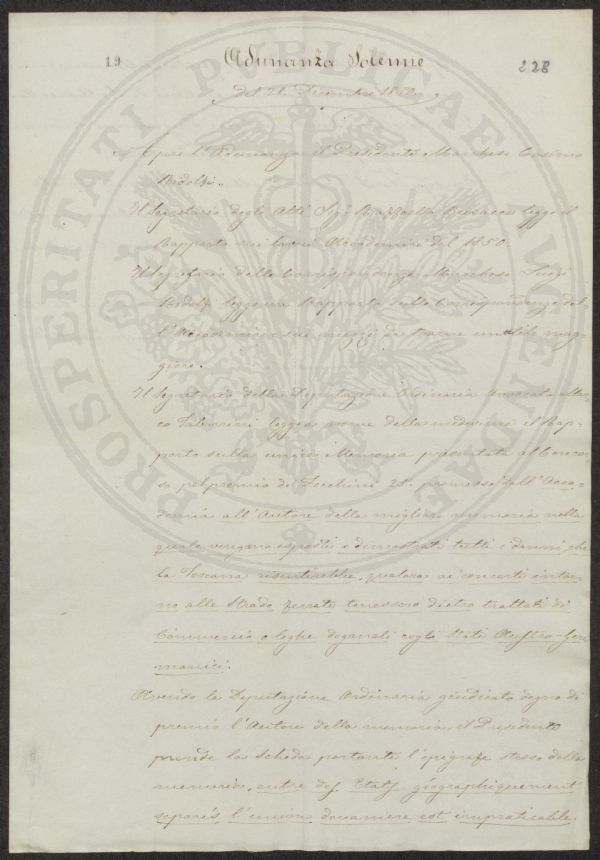 19
Adunanza Solenne
228
del 21. Dicembre 1850.
Apre l'Adunanza il Presidente Marchese Cosimo
Ridolfi.
Il Segretario degli Atti Sig. Raffaello Busacca legge il
Rapporto sui lavori Accademici del 1850.
Il Segretario delle Corrispondenze Marchese Luigi
Ridolfi legge un Rapporto sulla Corrispondenza del-
l'Accademia e sui mezzi di trarne un utile mag-
giore.
Il Segretario della Deputazione Ordinaria Avvocato Mar-
co Tabarrini legge a nome della medesima il Rap-
porto sulla unica Memoria presentata al Concor-
so pel premio di Zecchini 25. promesso dall'Acca-
demia all'Autore della migliore memoria nella
quale vengano esposti e dimostrati tutti i danni che
la Toscana risentirebbe, qualora ai concerti intor-
no alle Strade ferrate tenessero dietro trattati di
Commercio o leghe doganali cogli Stati Austro-Ger-
manici.
Avendo la Deputazione Ordinaria giudicato degno di
premio l'Autore della memoria, il Presidente
prende la scheda portante l'epigrafe stessa della
memoria, entre des Etats géographiquement
separés l'union douaniere est impraticable,
PROSPERITATI PUBLICAE AUGENDAE